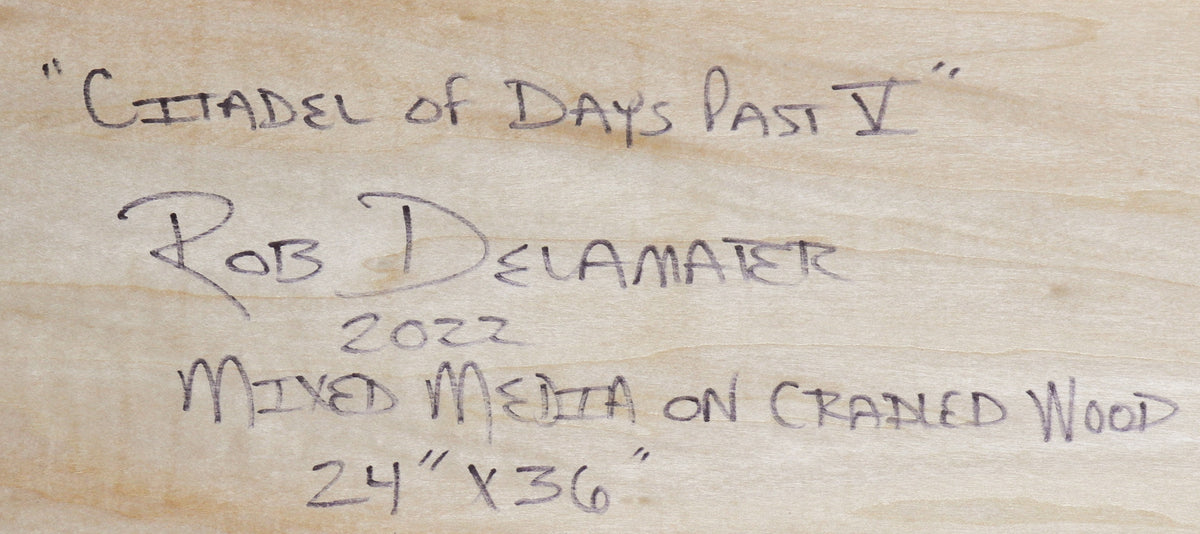 "Citadel of Days Past V"
Rob Delamater
2022
Mixed Media on Cradled Wood
24" x 36"